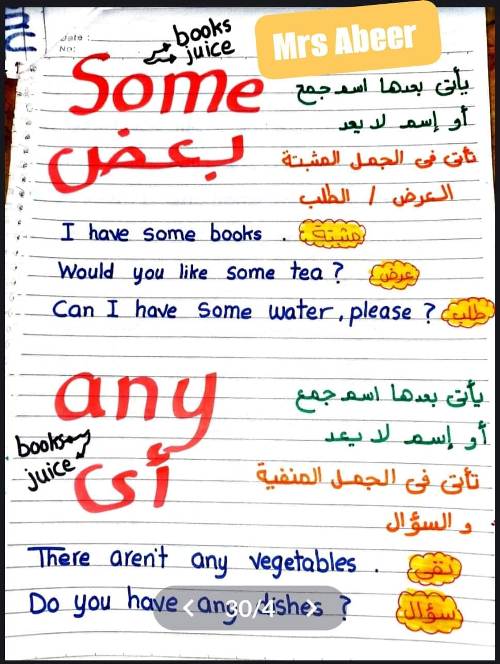 Date :
No:
books
juice
Mrs Abeer
Some
يأتى بعدها اسم جمع
أو إسم لا يعد
بعض
تأتى فى الجمل المثبتة
العرض / الطلب
I have some books . مثبتة
Would you like some tea ? عرض
Can I have some water, please ? طلب
any
يأتى بعدها اسم جمع
أو إسم لا يعد
books
juice
أى
تأتى فى الجمل المنفية
و السؤال
There aren't any vegetables . نفى
Do you have any dishes ? سؤال
30/4